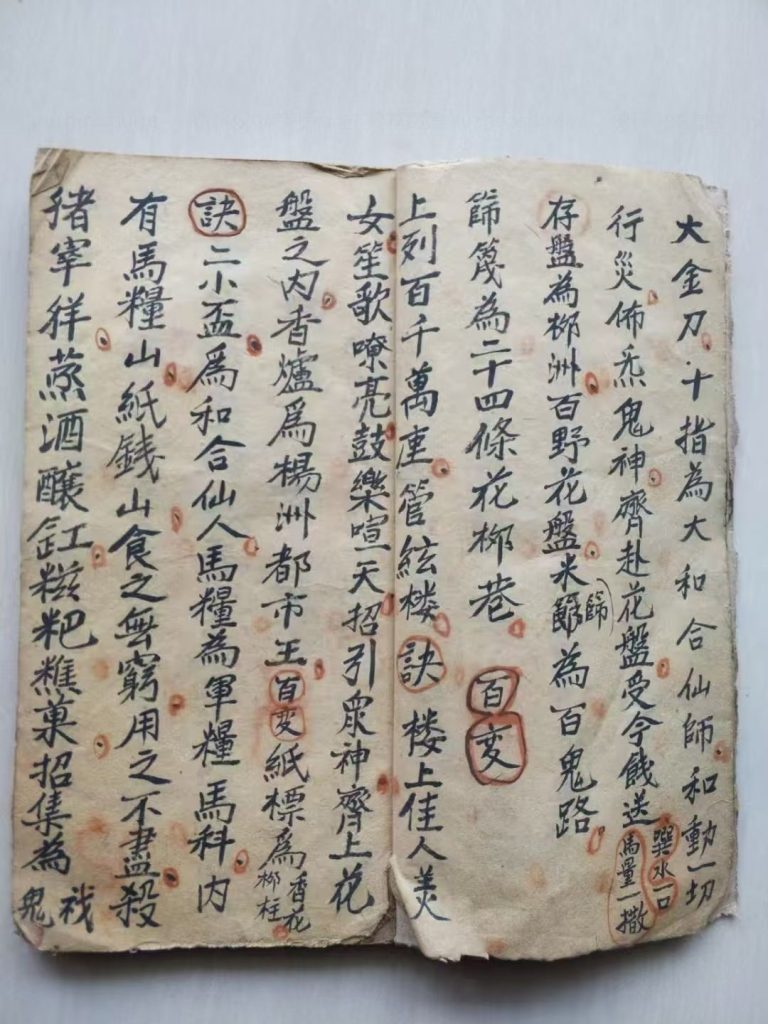 大金刀十指為大和合仙師和動一切
行災佈炁鬼神齊赴花盤受令餞送
噀水一口
馬量一撒
存盤為柳洲百野花盤米歸為百鬼路
歸
篩篾為二十四條花柳巷 百变
上列百千萬座管絃楼訣楼上佳人美
女笙歌嘹亮鼓樂喧天招引眾神齊上花
盤之内香爐爲楊洲都市王百変紙標爲香花
柳柱
訣二小盃爲和合仙人馬糧為軍糧馬科内
有馬糧山紙錢山食之無窮用之不盡殺
猪宰羊蒸酒釀缸糍粑醮菓招集為
鬼